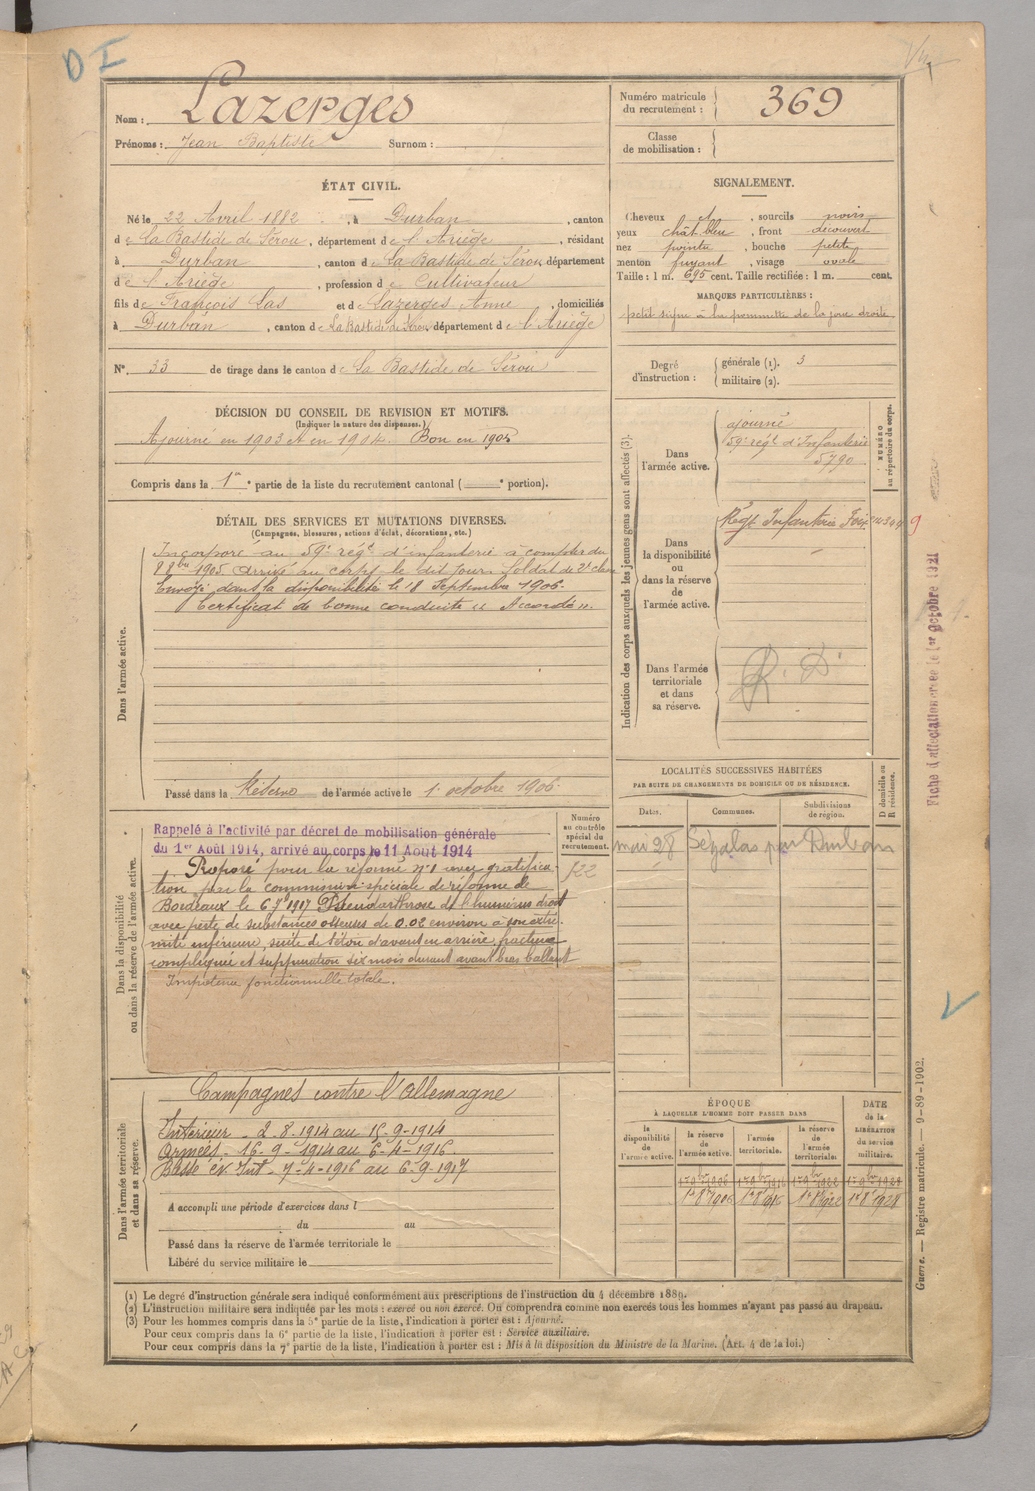 D I
Vu
Nom : Lazerges
Prénoms : Jean Baptiste Surnom :
Numéro matricule du recrutement : 369
Classe de mobilisation :
ÉTAT CIVIL.
Né le 22 Avril 1882, à Durban, canton
de La Bastide de Sérou, département de l'Ariège, résidant
à Durban, canton de La Bastide de Sérou département
de l'Ariège, profession de Cultivateur
fils de François Las et de Lazerges Anne, domiciliés
à Durban, canton de La Bastide de Sérou département de l'Ariège
N° 33 de tirage dans le canton de La Bastide de Sérou
SIGNALEMENT.
Cheveux et, sourcils noirs
yeux chât. bleu, front découvert
nez pointu, bouche petite
menton fuyant, visage ovale
Taille : 1 m. 695 cent. Taille rectifiée : 1 m. cent.
MARQUES PARTICULIÈRES :
petit signe à la pommette de la joue droite
Degré d'instruction : générale (1). 3
militaire (2).
DÉCISION DU CONSEIL DE REVISION ET MOTIFS.
(Indiquer la nature des dispenses.)
Ajourné en 1903 et en 1904. Bon en 1905
Compris dans la 1re partie de la liste du recrutement cantonal ( e portion).
DÉTAIL DES SERVICES ET MUTATIONS DIVERSES.
(Campagnes, blessures, actions d'éclat, décorations, etc.)
Dans l'armée active.
Incorporé au 59e régt d'infanterie à compter du
8 8bre 1905 arrivé au corps le dit jour. Soldat de 2e classe
Envoyé dans la disponibilité le 18 Septembre 1906.
Certificat de bonne conduite "Accordé".
Passé dans la Réserve de l'armée active le 1 octobre 1906
Indication des corps auxquels les jeunes gens sont affectés (3).
NUMÉRO au répertoire du corps.
Dans l'armée active.
ajourné
59e régt d'Infanterie
5790
Dans la disponibilité ou dans la réserve de l'armée active.
Régt Infanterie Foix
9
Dans l'armée territoriale et dans sa réserve.
R. D
Fiche d'affectation créée le 1er Octobre 1921
LOCALITÉS SUCCESSIVES HABITÉES
PAR SUITE DE CHANGEMENTS DE DOMICILE OU DE RÉSIDENCE.
D domicile ou R résidence.
Dates. Communes. Subdivisions de région.
mai 28 Ségalas par Durban
Dans la disponibilité ou dans la réserve de l'armée active.
Numéro au contrôle spécial du recrutement.
522
Rappelé à l'activité par décret de mobilisation générale
du 1er Août 1914, arrivé au corps le 11 Août 1914
Reporé pour la réforme n°1 avec gratifica-
tion par la commission spéciale de réforme de
Bordeaux le 6 7bre 1917 Pseudarthrose de l'humérus droit
avec perte de substances osseuse de 0.02 environ à son extré-
mité inférieure, suite de séton d'avant en arrière, fracture
compliquée et suppuration six mois durant avant bras ballant
Impotence fonctionnelle totale.
Dans l'armée territoriale et dans sa réserve.
Campagnes contre l'Allemagne
Intérieur - 2.8.1914 au 15-9-1914
Armées - 16-9-1914 au 6-4-1916.
Blessé év. Int. 7-4-1916 au 6-9-1917
A accompli une période d'exercices dans l
du au
Passé dans la réserve de l'armée territoriale le
Libéré du service militaire le
ÉPOQUE
À LAQUELLE L'HOMME DOIT PASSER DANS
DATE de la LIBÉRATION du service militaire.
la disponibilité de l'armée active. la réserve de l'armée active. l'armée territoriale. la réserve de l'armée territoriale.
1er 9bre 1906 1er 9bre 1916 1er 9bre 1922 1er 9bre 1928
1er 8bre 1906 1er 8bre 1916 1er 8bre 1922 1er 8bre 1928
(1) Le degré d'instruction générale sera indiqué conformément aux prescriptions de l'instruction du 4 décembre 1889.
(2) L'instruction militaire sera indiquée par les mots : exercé ou non exercé. On comprendra comme non exercés tous les hommes n'ayant pas passé au drapeau.
(3) Pour les hommes compris dans la 5e partie de la liste, l'indication à porter est : Ajourné.
Pour ceux compris dans la 6e partie de la liste, l'indication à porter est : Service auxiliaire.
Pour ceux compris dans la 7e partie de la liste, l'indication à porter est : Mis à la disposition du Ministre de la Marine. (Art. 4 de la loi.)
Guerre. — Registre matricule. — 9-89-1902.